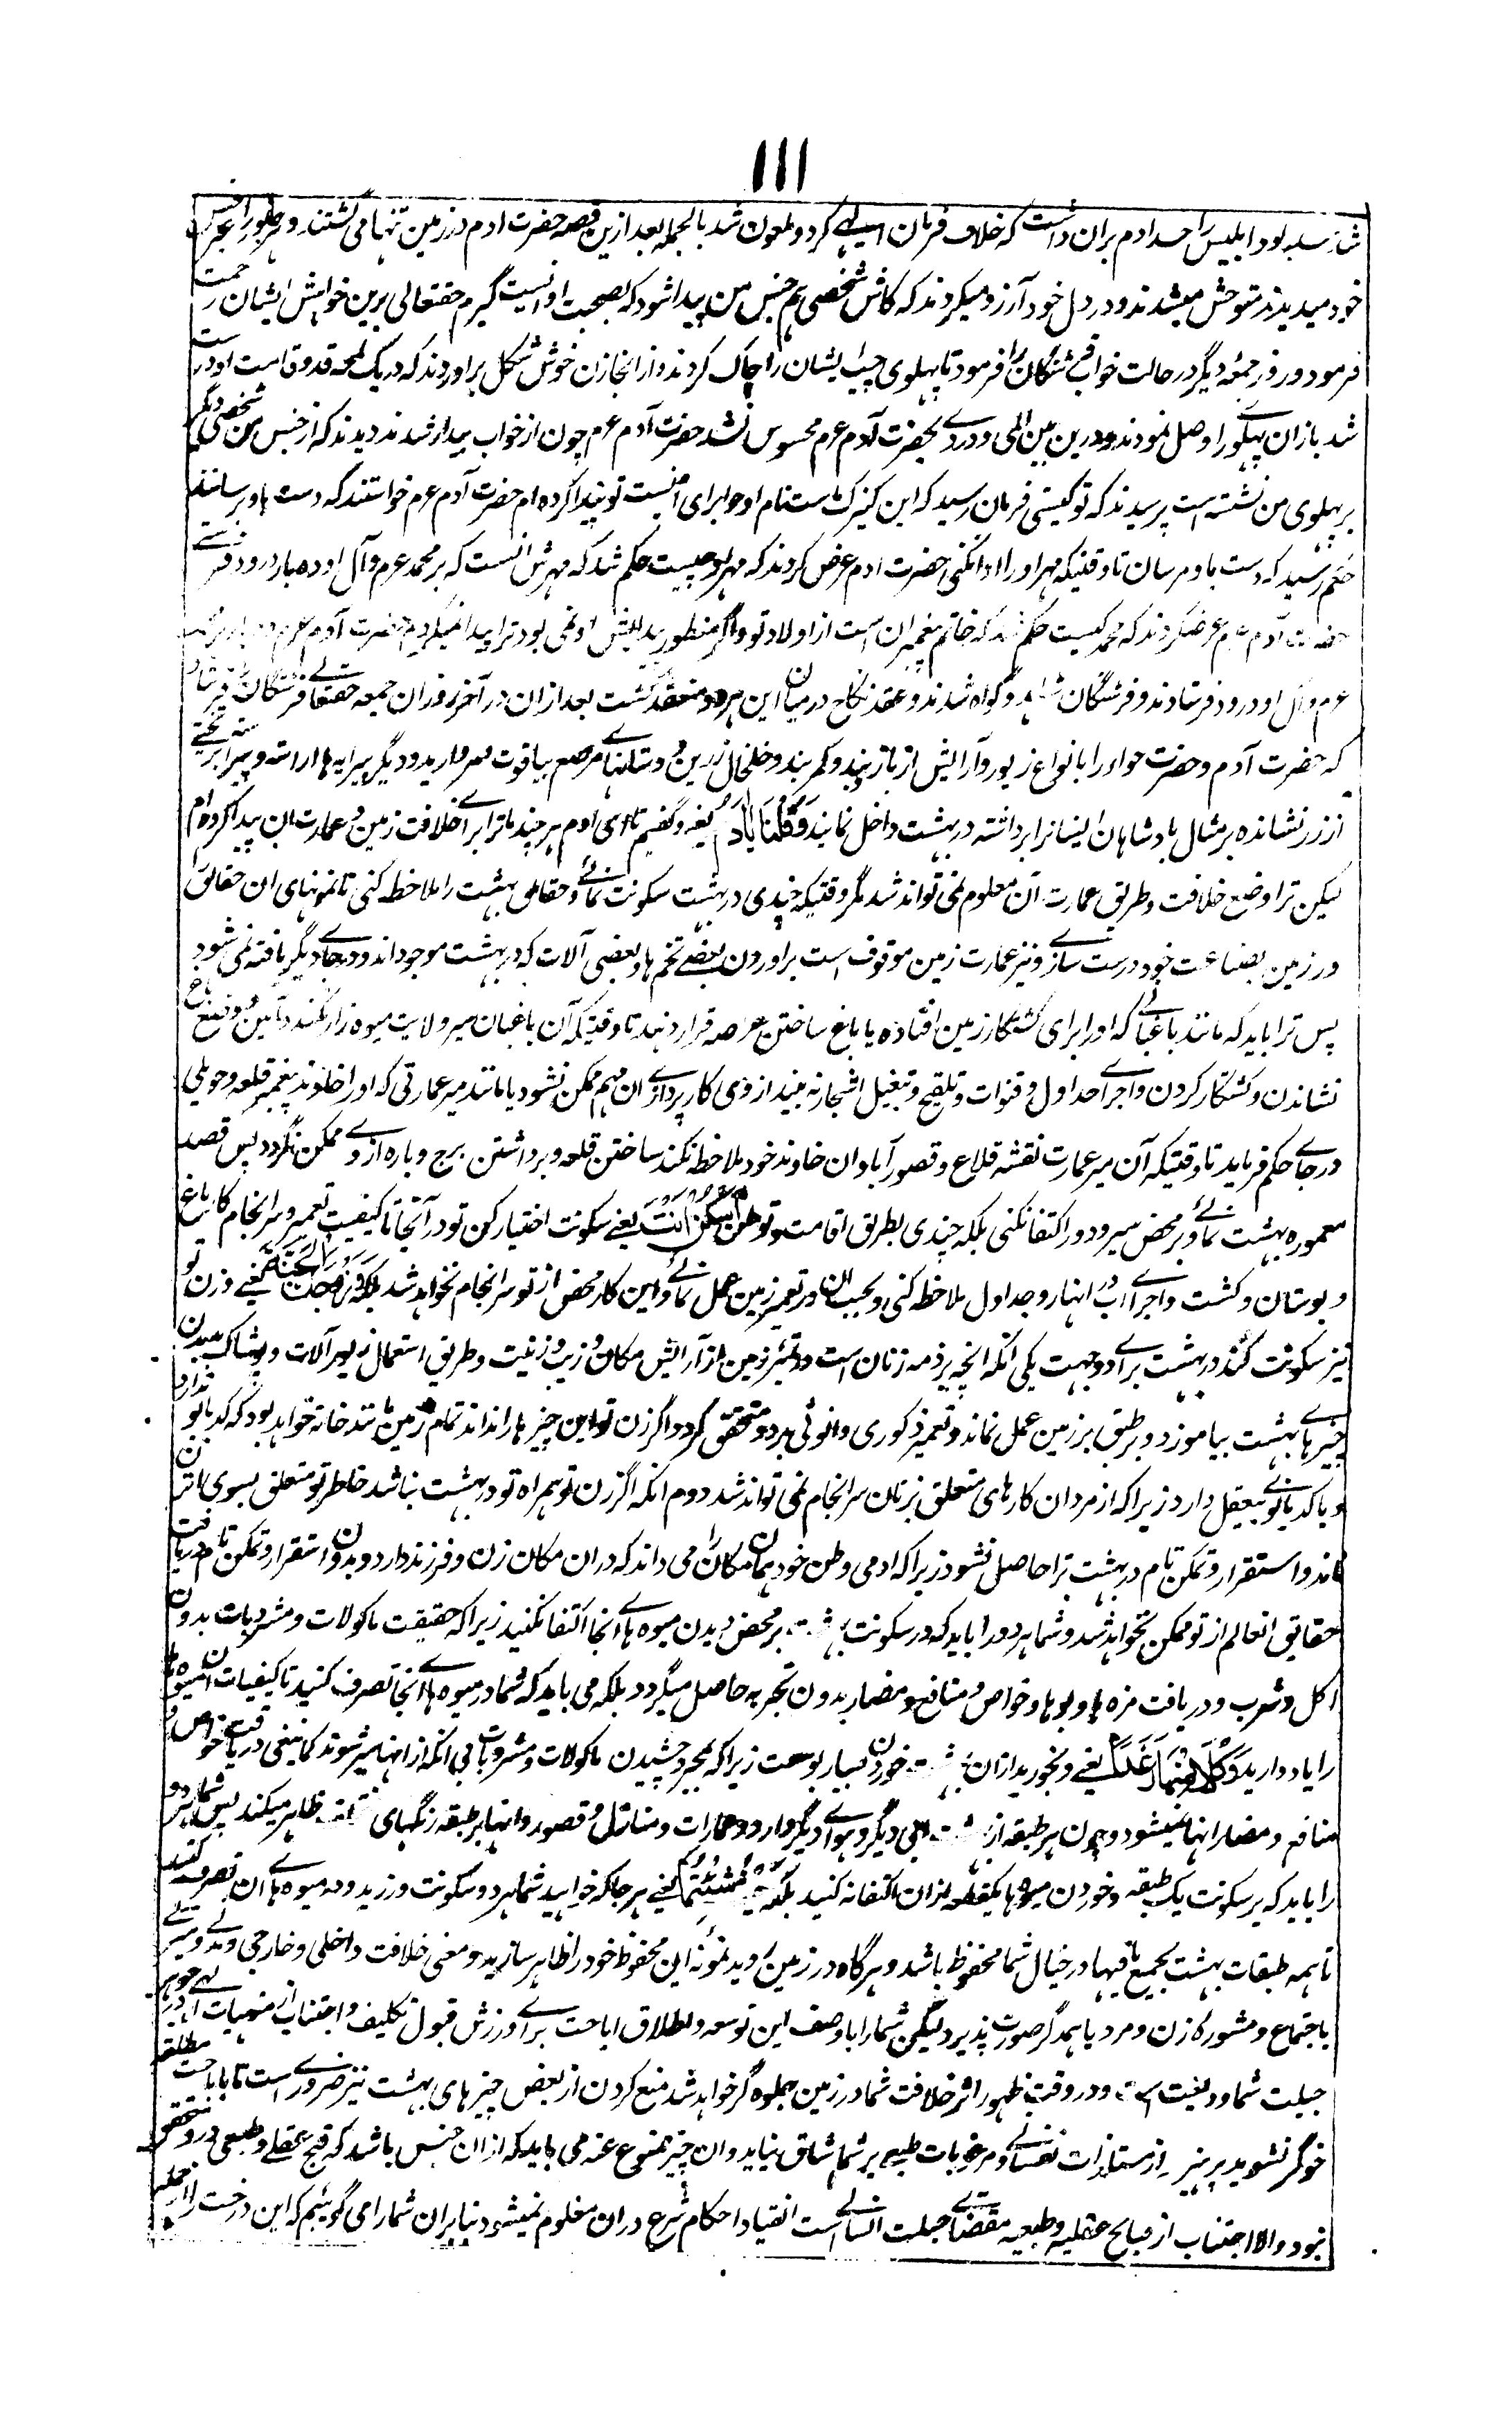 ۱۱۱
شده بود ابلیس را حسد ادم بران داشت که خلاف فرمان الهی کرد و ملعون شد بالجمله بعد ازین قصه حضرت ادم در زمین تنها می گشتند و هر جانور را غیر جنس
خود میدیدند متوحش میشدند و در دل خود آرزو میکردند که کاش شخصی هم جنس من پیدا شود که بصحبت او انست گیرم حقتعالی برین خواهش ایشان رحمت
فرمود و روز جمعه دیگر در حالت خواب فرشتگان را فرمود تا پهلوی چپ ایشان را چاک کردند و از انجا زن خوش شکل براوردند که در یک لمحه قد و قامت او درست
شد باز ان پهلو را وصل نمودند و درین بین المی و دردی بحضرت آدم عرم محسوس نشد حضرت آدم عرم چون از خواب بیدار شدند دیدند که از جنس من شخصی دیگر
بر پهلوی من نشسته است پرسیدند که تو کیستی فرمان رسید که این کنیزک ماست نام او حوا برای انست تو پیدا کرده ام حضرت آدم عرم خواستند که دست باو رسانند
حکم رسید که دست باو مرسان تا وقتیکه مهر او را ادا نکنی حضرت ادم عرض کردند که مهر او چیست حکم شد که مهرش انست که بر محمد عرم و آل او ده بار درود فرستی
حضرت آدم عرم عرض کردند که محمد کیست حکم شد که خاتم پیغمبران است از اولاد تو و اگر منظور پیدایش او نمی بود ترا پیدا نمیکردیم حضرت آدم عرم ده بار بر محمد
عرم و آل او درود فرستادند و فرشتگان شاهد و گواه شدند و عقد نکاح در میان این هر دو منعقد گشت بعد ازان در آخر روز ان جمعه حقتعالی فرشتگان را فرستاد
که حضرت آدم و حضرت حوا را بانواع زیور و آرایش از بازوبند و کمربند و خلخال زرین و دستانهای مرصع بیاقوت و مروارید و دیگر پیرایه ها اراسته و پیراسته بر تختی
از زر نشانده بر مثال بادشاهان ایشانرا برداشته در بهشت داخل نمایند وَقُلْنَا یَا آدَمُ یعنی و گفتیم ما ای ادم هر چند ما ترا برای خلافت زمین و عمارت ان پیدا کرده ام
لیکن ترا وضع خلافت و طریق عمارت آن معلوم نمی تواند شد مگر وقتیکه چندی در بهشت سکونت نمائی و حقایق بهشت را ملاحظه کنی تا نمونهای ان حقایق را
در زمین بصناعت خود درست سازی و نیز عمارت زمین موقوف است براوردن بعضی تخم ها و بعضی آلات که در بهشت موجود اند و در جای دیگر یافته نمی شود
پس ترا باید که مانند باغبانی که او را برای کشتکار زمین افتاده یا باغ ساختن عرصه قرار دهند تا وقتیکه آن باغبان سیر ولایت میوه زار نکند و آئین و وضع باغ
نشاندن و کشتکار کردن و اجرای جداول و قنوات و تلقیح و تبغیل اشجار نه بیند از وی کارپردازی ان مهم ممکن نشود یا مانند میر عمارتی که او را خاوند بتعمیر قلعه و حویلی
در جای حکم فرماید تا وقتیکه آن میر عمارت نقشه قلاع و قصور آبادان خاوند خود ملاحظه نکند ساختن قلعه و برداشتن برج و باره از وی ممکن نگردد پس قصد
معموره بهشت نمائی و بر محض سیر و دور اکتفا نکنی بلکه چندی بطریق اقامت و توطن اُسْکُنْ أَنْتَ یعنی سکونت اختیار کن تو در آنجا تا کیفیت تعمیر و سرانجام کار باغ
و بوستان و کشت و اجرای آب و انهار و جداول ملاحظه کنی و بحسب ان در تعمیر زمین عمل نمائی و این کار محض از تو سرانجام نخواهد شد بلکه وَزَوْجُكَ الْجَنَّةَ یعنی و زن تو
نیز سکونت کند در بهشت برای دو جهت یکی انکه انچه بر ذمه زنان است در تعمیر زمین از آرایش مکان و زیب و زینت و طریق استعمال زیور آلات و پوشاک بیدن
چیزهای بهشت بیاموزد و بر طبق بر زمین عمل نماند و تعمیر ذکوری و انوثی هر دو متحقق گردد اگر زن تو این چیزها را نداند تمام زمین مانند خانه خواهد بود که کدبانو ندارد
و یا کدبانوی بیعقل دارد زیرا که از مردان کارهای متعلق بزنان سرانجام نمی تواند شد دوم انکه اگر زن تو همراه تو در بهشت نباشد خاطر تو متعلق بسوی ان زن
ماند و استقرار و تمکن تام در بهشت ترا حاصل نشود زیرا که ادمی وطن خود همان مکان را می داند که دران مکان زن و فرزند دارد و بدون استقرار و تمکن تام دریافت
حقایق انعالم از تو ممکن نخواهد شد و شما هر دو را باید که در سکونت بهشت بر محض دیدن میوه های انجا اکتفا نکنید زیرا که حقیقت ماکولات و مشروبات بدون
اکل و شرب و دریافت مزه ها و بوها و خواص و منافع و مضار بدون تجربه حاصل نمیگردد بلکه می باید که شما در میوه های انجا تصرف کنید تا کیفیات ان میوه ها
را یاد دارید وَكُلَا مِنْهَا رَغَدًا یعنی و بخورید ازان بهشت خوردن بسیار بوسعت زیرا که بمجرد چشیدن ماکولات و مشروبات بی انکه از انها سیر شوند کماینبغی دریافت خواص و
منافع و مضار انها نمیشود و چون هر طبقه از بهشت ابی دیگر و هوای دیگر دارد و عمارات و منازل و قصور و انهار هر طبقه رنگهای مختلفه ظاهر میکند پس شما هر دو
را باید که بر سکونت یک طبقه و خوردن میوه های یکقطعه ازان اکتفا نه کنید بلکه حَيْثُ شِئْتُمَا یعنی هر جا که خواهید شما هر دو سکونت ورزید و در میوه های ان تصرف کنید
تا همه طبقات بهشت بجمیع مافیها در خیال شما محفوظ باشد و هرگاه در زمین روید نمونه این محفوظ خود را ظاهر سازید و معنی خلافت داخلی و خارجی و
باجتماع و مشوره زن و مرد باهمدگر صورت پذیرد لیکن شما را با وصف این توسعه و اطلاق اباحت برای ورزش قبول تکلیف و اجتناب از منهیات
جبلت شما ودیعت است و در وقت ظهور اثر خلافت شما در زمین جلوه گر خواهد شد منع کردن از بعض چیزهای بهشت نیز ضروری است تا باباحت مطلقه
خوگر نشوید و پرهیز از مستلذات نفسانی و مرغوبات طبیعیه بر شما شاق نیاید و ان چیز ممنوع عنه می باید که از ان جنس باشد که قبح عقلی و طبعی در و متحقق
نبود و الا اجتناب از قبایح عقلیه و طبیعیه مقتضای جبلت انسانی است انقیاد احکام شرع دران معلوم نمیشود بنابران شما را می گوییم که این درخت را از جمله